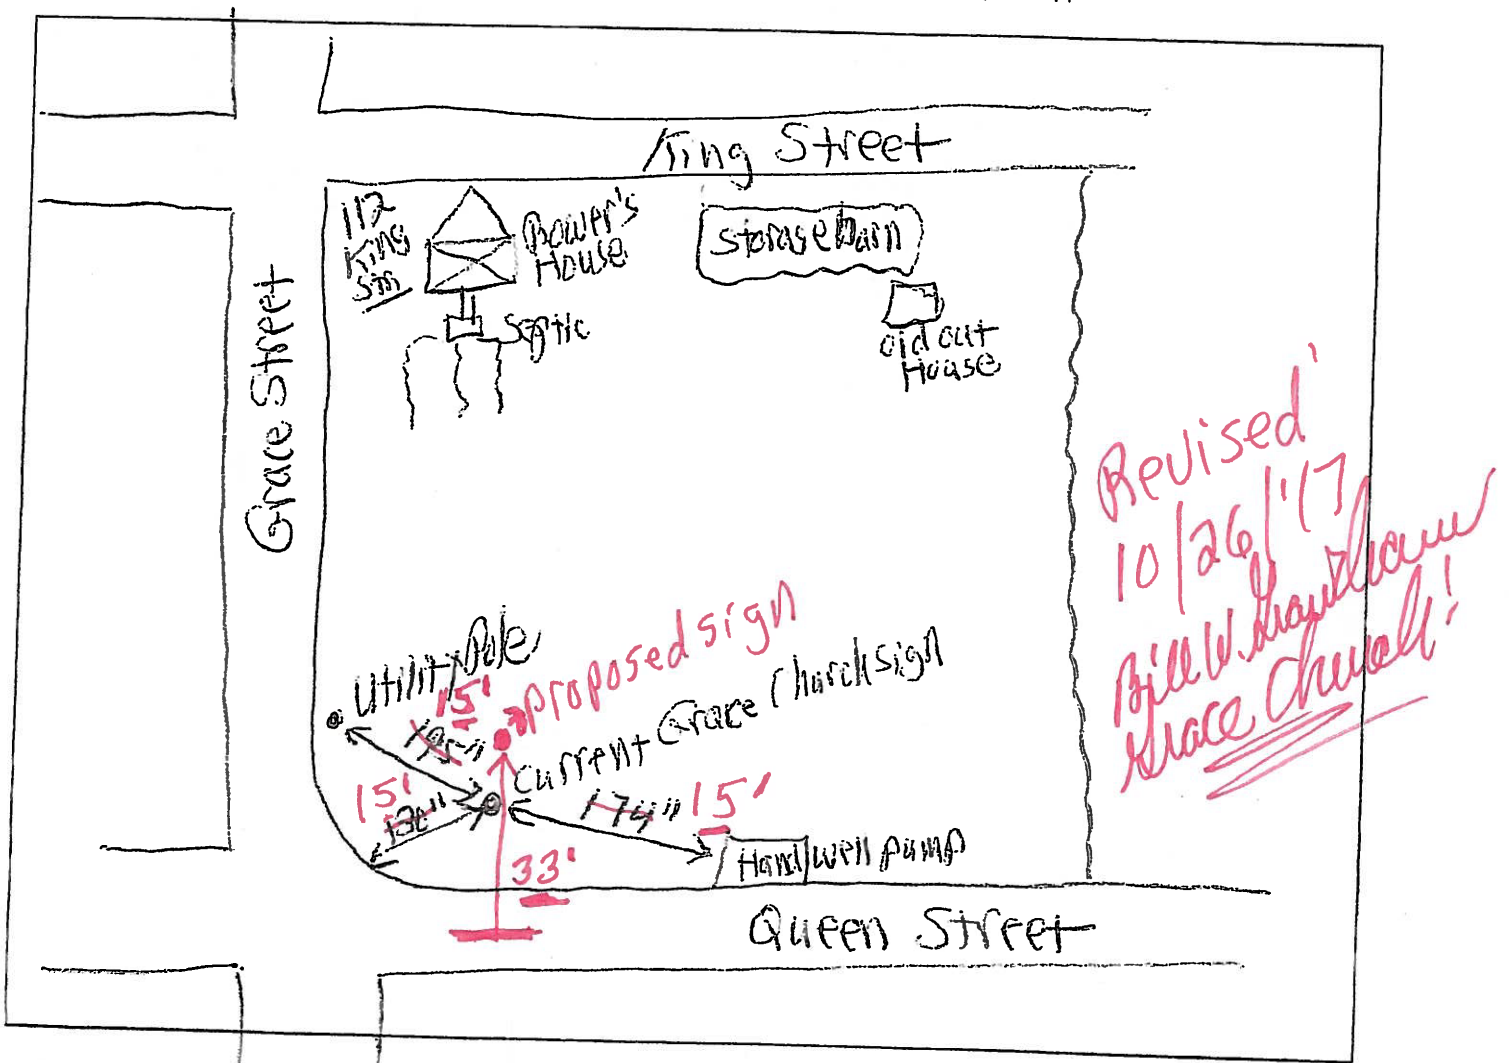 King Street
112
King
Bower's
House
Storage barn
Septic
old out
House
Grace Street
Revised
10/26/'17
Bill W.
Grace Church!
utility Pole
proposed sign
15'
195"
Current Grace Church sign
15'
130"
174"
15'
Hand well pump
33'
Queen Street